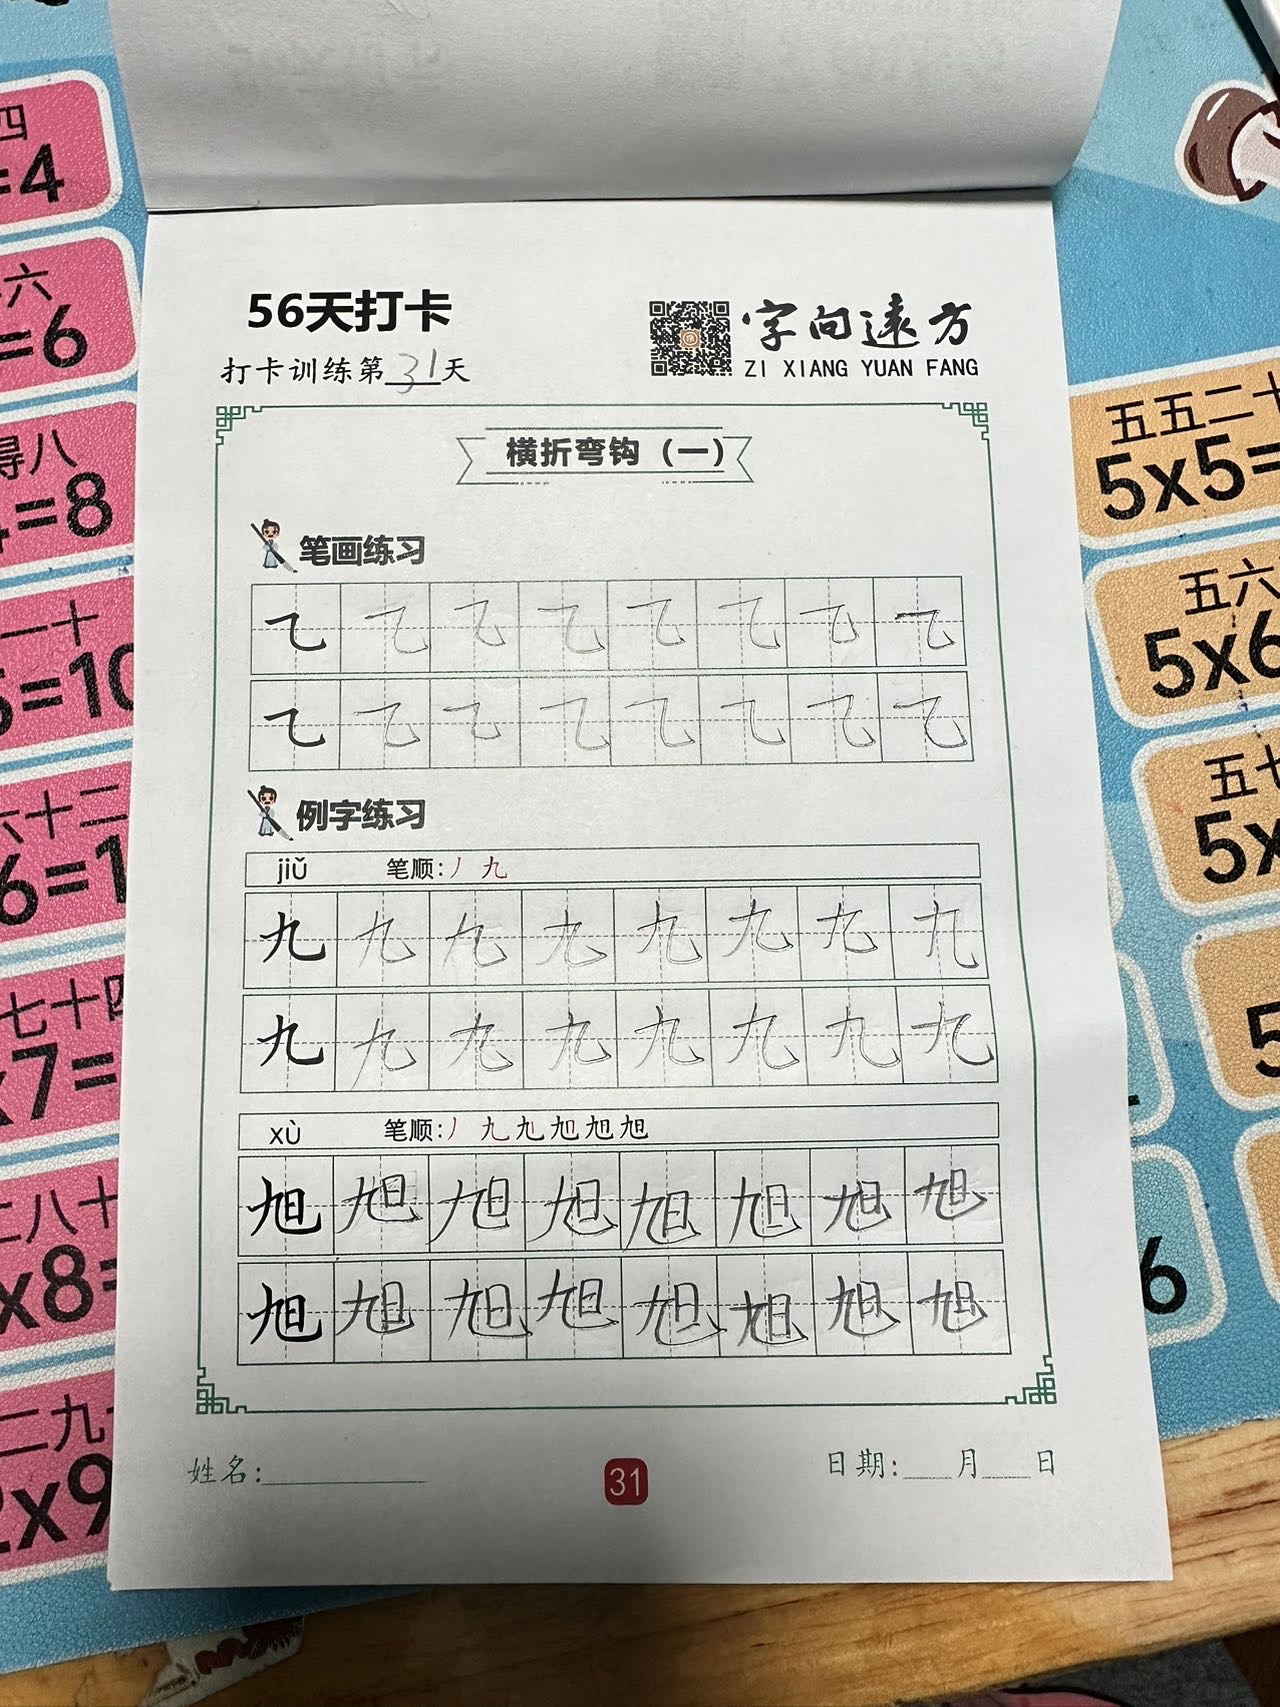 56天打卡
打卡训练第31天
字向远方
ZI XIANG YUAN FANG
横折弯钩（一）
笔画练习
㇈ ㇈ ㇈ ㇈ ㇈ ㇈ ㇈ ㇈
㇈ ㇈ ㇈ ㇈ ㇈ ㇈ ㇈ ㇈
例字练习
jiǔ 笔顺:丿 九
九 九 九 九 九 九 九 九
九 九 九 九 九 九 九 九
xù 笔顺:丿 九 旭 旭 旭 旭
旭 旭 旭 旭 旭 旭 旭 旭
旭 旭 旭 旭 旭 旭 旭 旭
姓名:
31
日期: 月 日
四
=4
六
=6
得八
4=8
一十
5=10
六十二
6=1
七十四
x7=
二八十
x8=
二九
2x9
五五二十
5x5=
五六
5x6
五七
5x
5
6